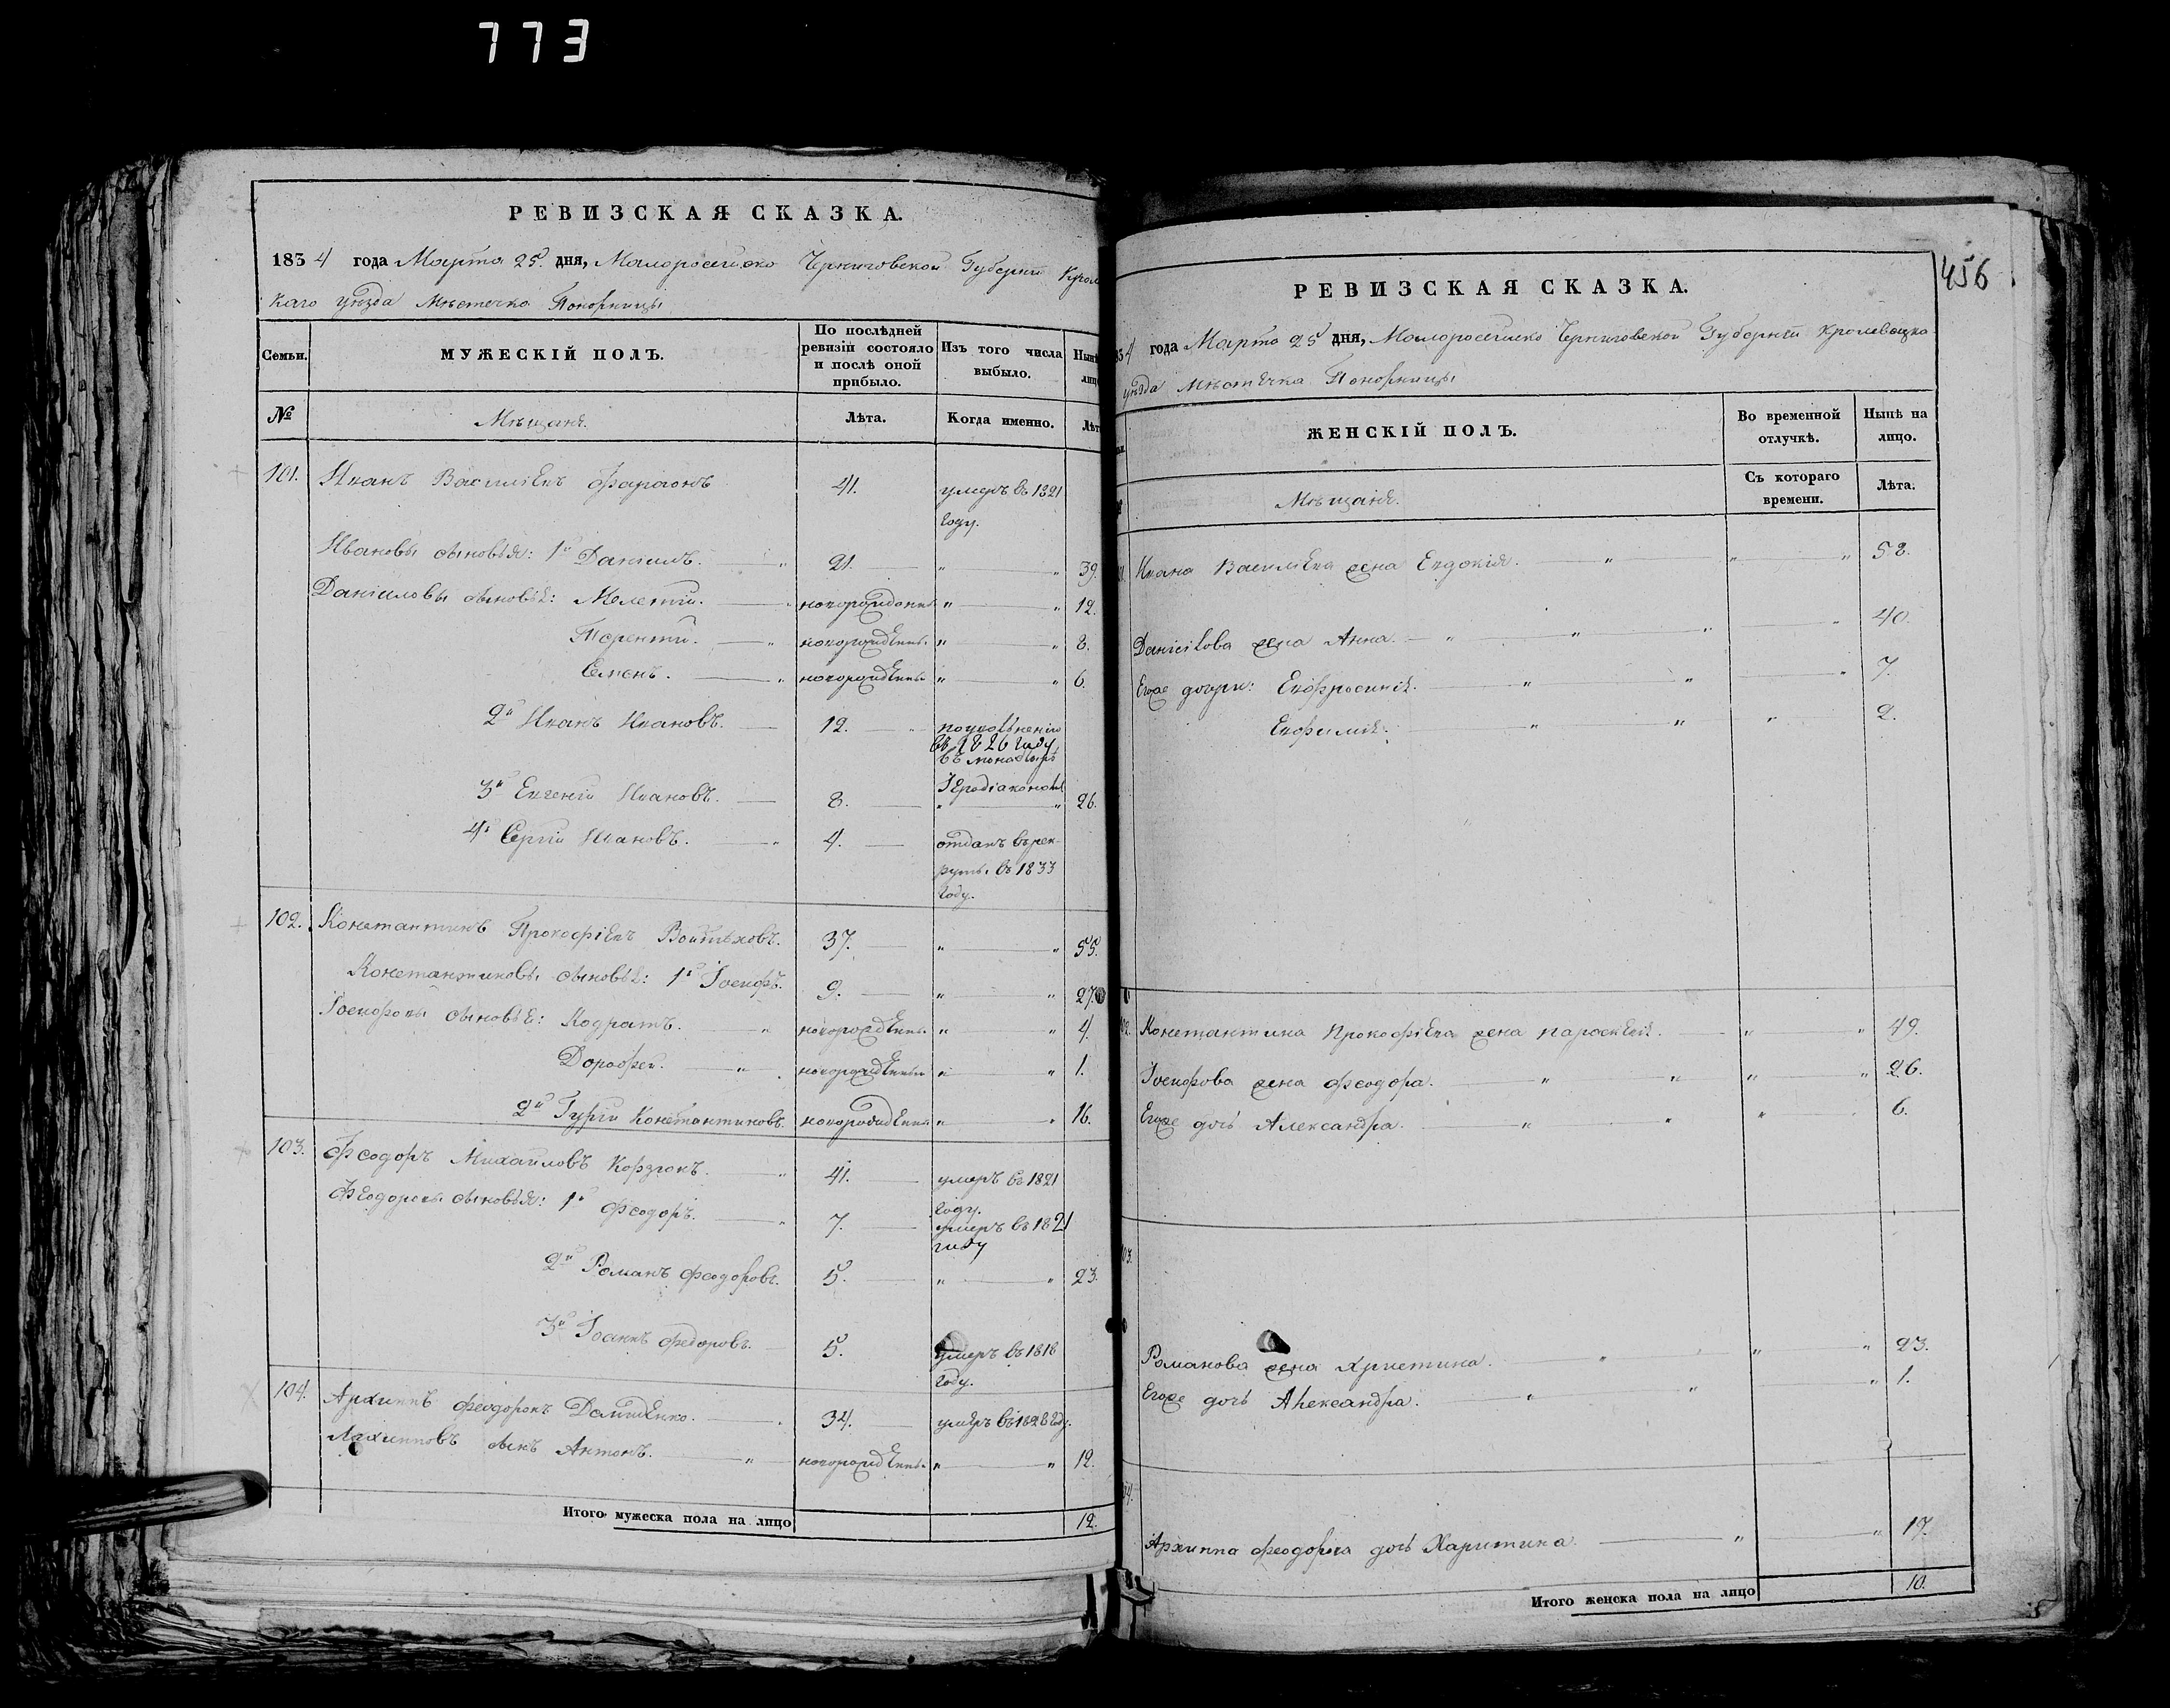 773
РЕВИЗСКАЯ СКАЗКА.
1834 года Марта 25 дня, Малоросеійско Черниговской Губерніи Крол
каго уѣзда Мѣстечка Понорницы
Семьи.
МУЖЕСКІЙ ПОЛЪ.
По послѣдней ревизіи состояло и послѣ оной прибыло.
Изъ того числа выбыло.
Нынѣ лицо
№
Мѣщане.
Лѣта.
Когда именно.
Лѣт
101. Иванъ Васильевъ Фараонъ 41. умеръ въ 1821
году.
Ивановы сыновья: 1й Даніилъ. 21. " " 39.
Даніиловы сыновья: Мелетій. новорожденны " " 12.
Терентій. новорожденны. " " 8.
Семенъ. новорожденны " " 6.
2й Иванъ Ивановъ. 12. поуволненію
въ 1826 году
въ монастырѣ
Іеродіакономъ
3й Евгеній Ивановъ. 8. " " 26.
4й Сергій Ивановъ. 4. отданъ въ рек-
руты въ 1833
году.
102. Константинъ Прокофіевъ 37. " " 55.
Константиновы сыновья: 1й Іосифъ. 9. " " 27.
Іосифовы сыновья: Кодратъ. новорожденны. " " 4.
Дорофей. новорожденны " " 1.
2й Гурій Константиновъ. новорожденны " " 16.
103. Феодоръ Михайловъ Корзюкъ. 41. умеръ въ 1821
году.
Феодоровы сыновья: 1й Феодоръ. 7. умеръ въ 1821
году
2й Романъ Феодоровъ. 5. " " 23.
3й Іоаннъ Федоровъ. 5. умеръ въ 1818
году.
104. Архиппъ Феодоровъ 34. умеръ въ 1828 году.
Архипповъ сынъ Антонъ. новорожденны. " " 12.
Итого мужеска пола на лицо 12.
456
РЕВИЗСКАЯ СКАЗКА.
34 года Марта 25 дня, Малоросеійско Черниговской Губерніи Кролевецко
уѣзда Мѣстечка Понорницы
ЖЕНСКІЙ ПОЛЪ.
Во временной отлучкѣ.
Нынѣ на лицо.
Мѣщане.
Съ котораго времени.
Лѣта.
Ивана Васильева жена Евдокія. " " " 58.
Даніилова жена Анна. " " " " 40.
Егоже дочери: Евфросинія. " " " 7.
Евфимія. " " " 2.
102. Константина Прокофіева жена Параскевія. " " 49.
Іосифова жена Феодора. " " " " 26.
Егоже дочь Александра. " " " 6.
103.
Романова жена Христина. " " " 23.
Егоже дочь Александра. " " " 1.
104.
Архиппа Феодорова дочь Харитина. " " 17.
Итого женска пола на лицо 10.